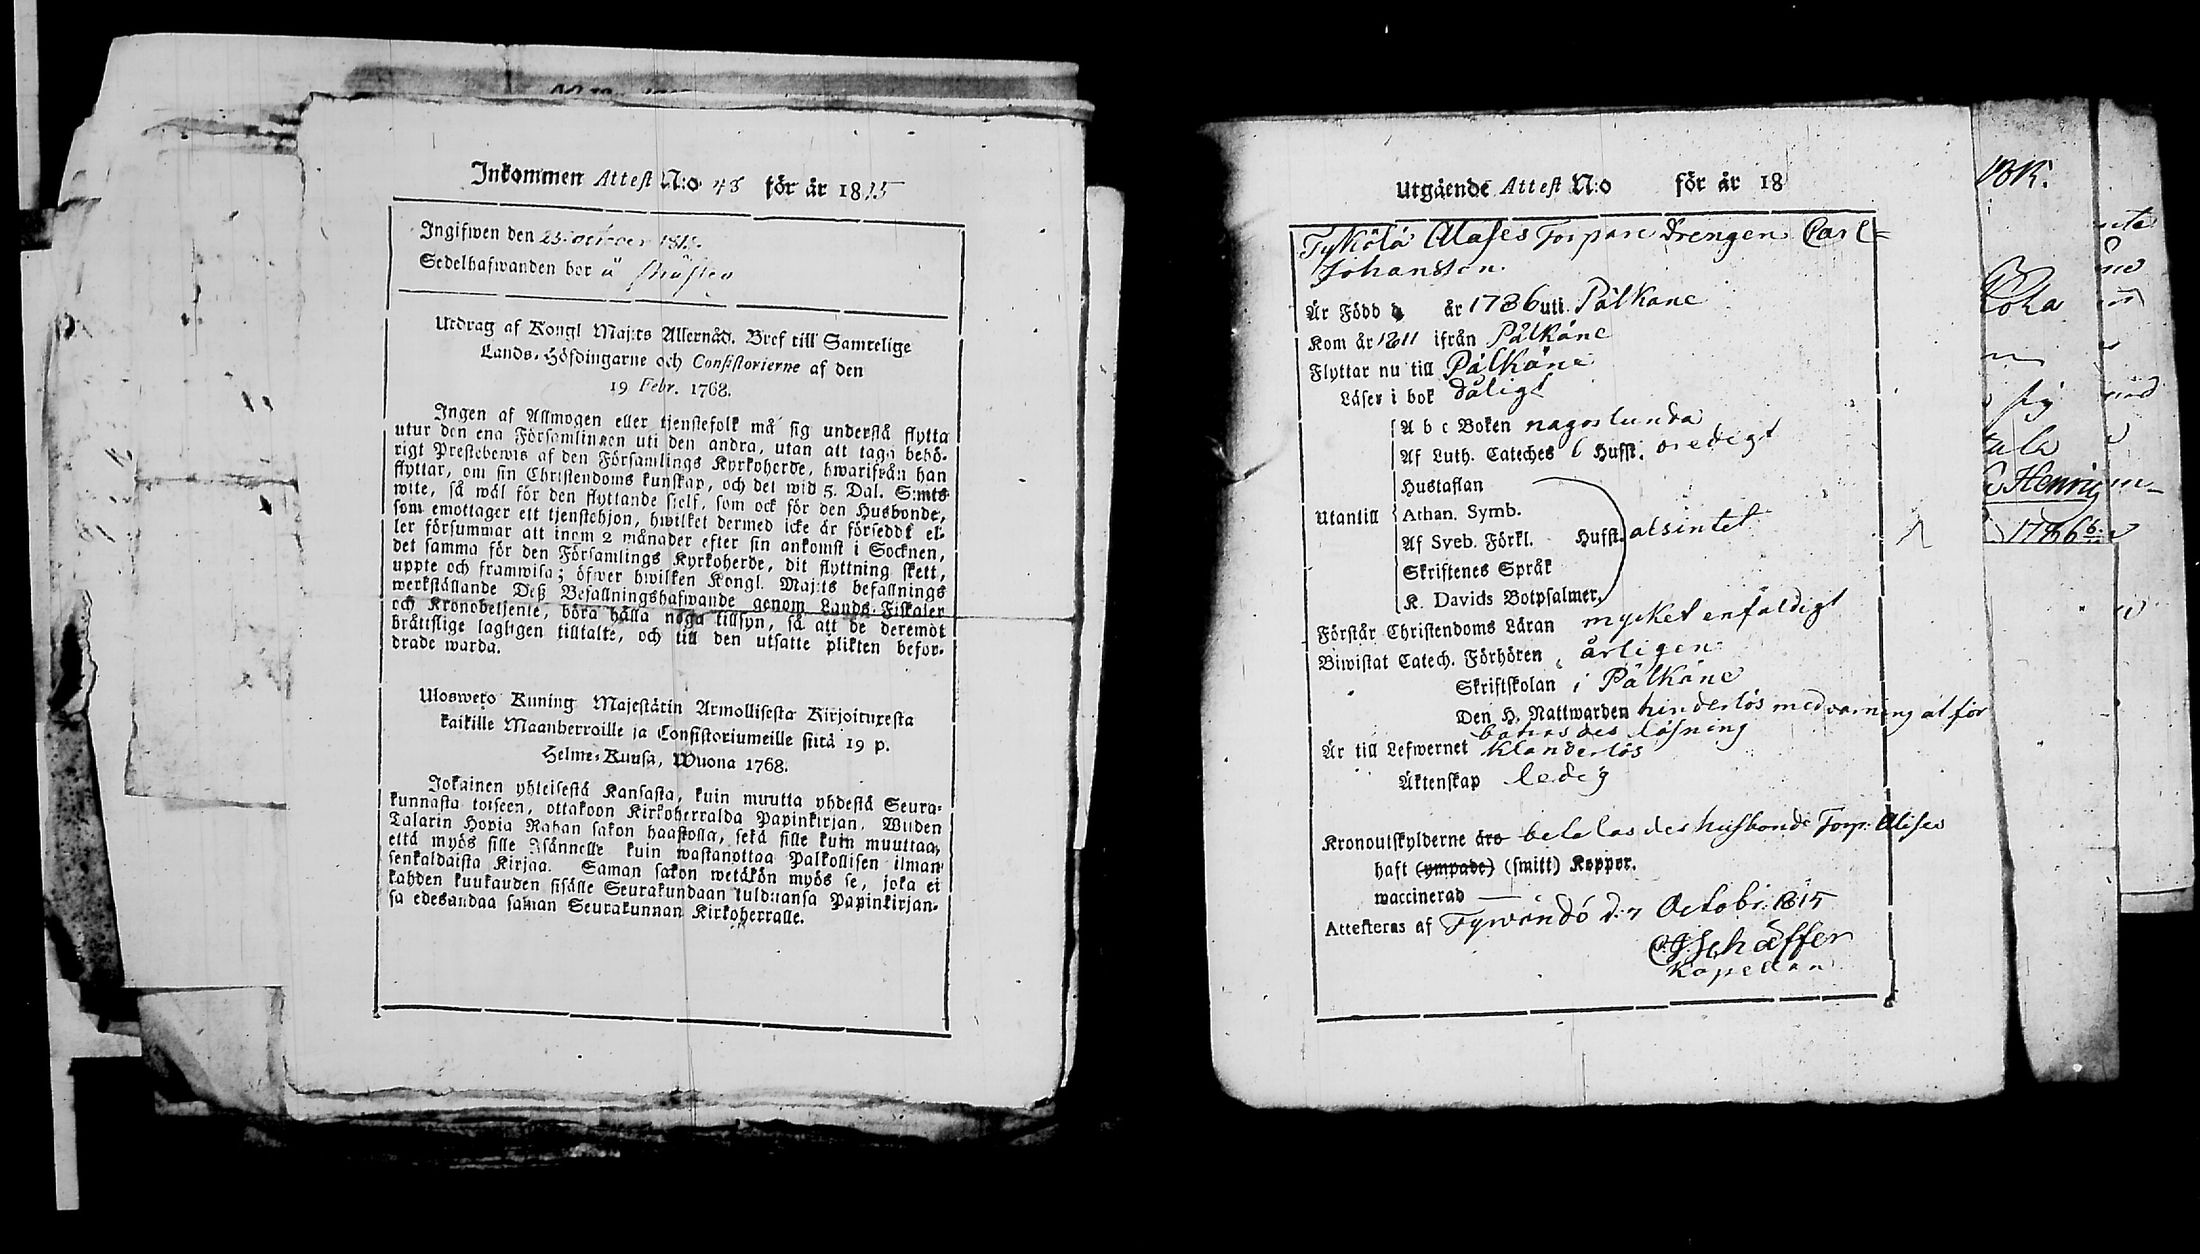 Inkommen Attest N:o 48 för år 1815
Ingifwen den 23 october 1815.
Sedelhafwanden bor å
Utdrag af Kongl Maj:ts Allernåd. Bref till Samtelige
Lands-Höfdingarne och Consistorierne af den
19 Febr. 1768.
Ingen af Allmogen eller tjenstefolk må sig understå flytta
utur den ena Församlingen uti den andra, utan att taga behö-
rigt Prestebewis af den Församlings Kyrkoherde, hwarifrån han
flyttar, om sin Christendoms kunskap, och det wid 5. Dal. S:mts
wite, så wäl för den flyttande sielf, som ock för den Husbonde,
som emottager ett tjenstehjon, hwilket dermed icke är försedt el-
ler försummar att inom 2 månader efter sin ankomst i Socknen,
det samma för den Församlings Kyrkoherde, dit flyttning skett,
uppte och framwisa; öfwer hwilken Kongl. Maj:ts befallnings
werkställande Deß Befallningshafwande genom Lands-Fiskaler
och Kronobetjente, böra hålla noga tillsyn, så att de deremot
bråttslige lagligen tilltalte, och till den utsatte plikten befor-
drade warda.
Ulosweto Kuning Majestätin Armollisesta Kirjoituxesta
kaikille Maanherroille ja Consistoriumeille siitä 19 p.
Helme-Kuusa, Wuona 1768.
Jokainen yhteisestä Kansasta, kuin muutta yhdestä Seura-
kunnasta toiseen, ottakoon Kirkoherralda Papinkirjan, Wiiden
Talarin Hopia Rahan sakon haastolla, sekä sille kuin muuttaa,
että myös sille Isännelle kuin wastanottaa Palkollisen ilman
senkaldaista Kirjaa. Saman sakon wetäkön myös se, joka ei
kahden kuukauden sisälle Seurakundaan tulduansa Papinkirjan-
sa edesandaa saman Seurakunnan Kirkoherralle.
Utgående Attest N:o för år 18
Tykölä Alases Torpare Drengen Carl
Johansson.
Är Född d år 1786 uti Pälkäne
Kom år 1811 ifrån Pälkäne
Flyttar nu till Pälkäne
Läser i bok dåligt
A b c Boken nagorlunda
Af Luth. Cateches 6 Hufst. oredigt
Hustaflan
Utantill Athan. Symb.
Af Sveb. Förkl. Hufst. alsintet
Skriftenes Språk
K. Davids Botpsalmer,
Förstår Christendoms Läran mycket enfaldigt
Biwistat Catech. Förhören årligen
Skriftskolan i Pälkäne
Den H. Nattwarden hinderlös med varning at för
bättras des läsning
Är till Lefwernet klanderlös
Äktenskap ledig
Kronoutskylderne äro betalas des husbonde Torp. Alases
haft (ympade) (smitt) Koppor.
waccinerad —
Attesteras af Tyrwändö d. 7 Octobr. 1815
Schæffer
Kapellan
Henric
1786